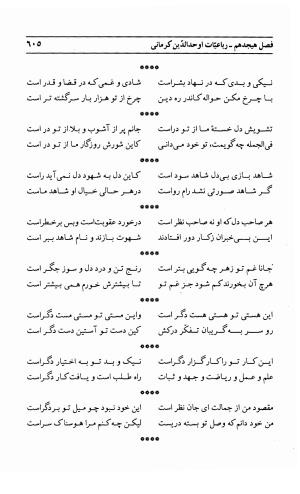 فصل هیجدهم ـ رباعیّات اوحدالدّین کرمانی ۶۰۵
****
نیکی و بدی که در نهاد بشراست شادی و غمی که در قضا و قدر است
با چرخ مکن حواله کاندر ره دین چرخ از تو هزار بار سرگشته تر است
****
تشویش دل خستهٔ ما از تو دراست جانم پر از آشوب و بلا از تو در است
فی‌الجمله چه گویمت، تو خود می‌دانی کاین شورش روزگار ما از تو در است
****
شاهد بازی بی‌دل شاهد سود است کاین دل به شهود دل نمی‌آید راست
گر شاهد صورتی نشد رام رواست درهر حالی خیال او شاهد ماست
****
هر صاحب دل که او نه صاحب نظر است درخورد عقوبت‌است وبس برخطراست
ایـن بی‌خبران زکار دور افتادند شهوت بازند و نام شاهد ببر است
****
جانا غم تو زهر چه گویی بتر است رنج تن و درد دل و سوز جگر است
هرچ آن بخورند کم شود جز غم تو تا بیشترش خورم همی بیشتر است
****
این هستی تو هستی هست دگراست واین مستی تو مستی مست دگراست
رو سـر بـه گریبان تفکّر درکش کین دست تو آستین دست دگر است
****
این کار تو را کارگزار دگراست نیک و بد تو به اختیار دگراست
علم و عمل و ریاضت و جهد و ثبات راه طلب است و یافت کار دگراست
****
مقصود من از جمالت ای جان نظر است این خود نبود چو میل تو بردگراست
من خود دانم که وصل تو بسته دریست لیکن چه کنم مرا هوسناک سراست
****